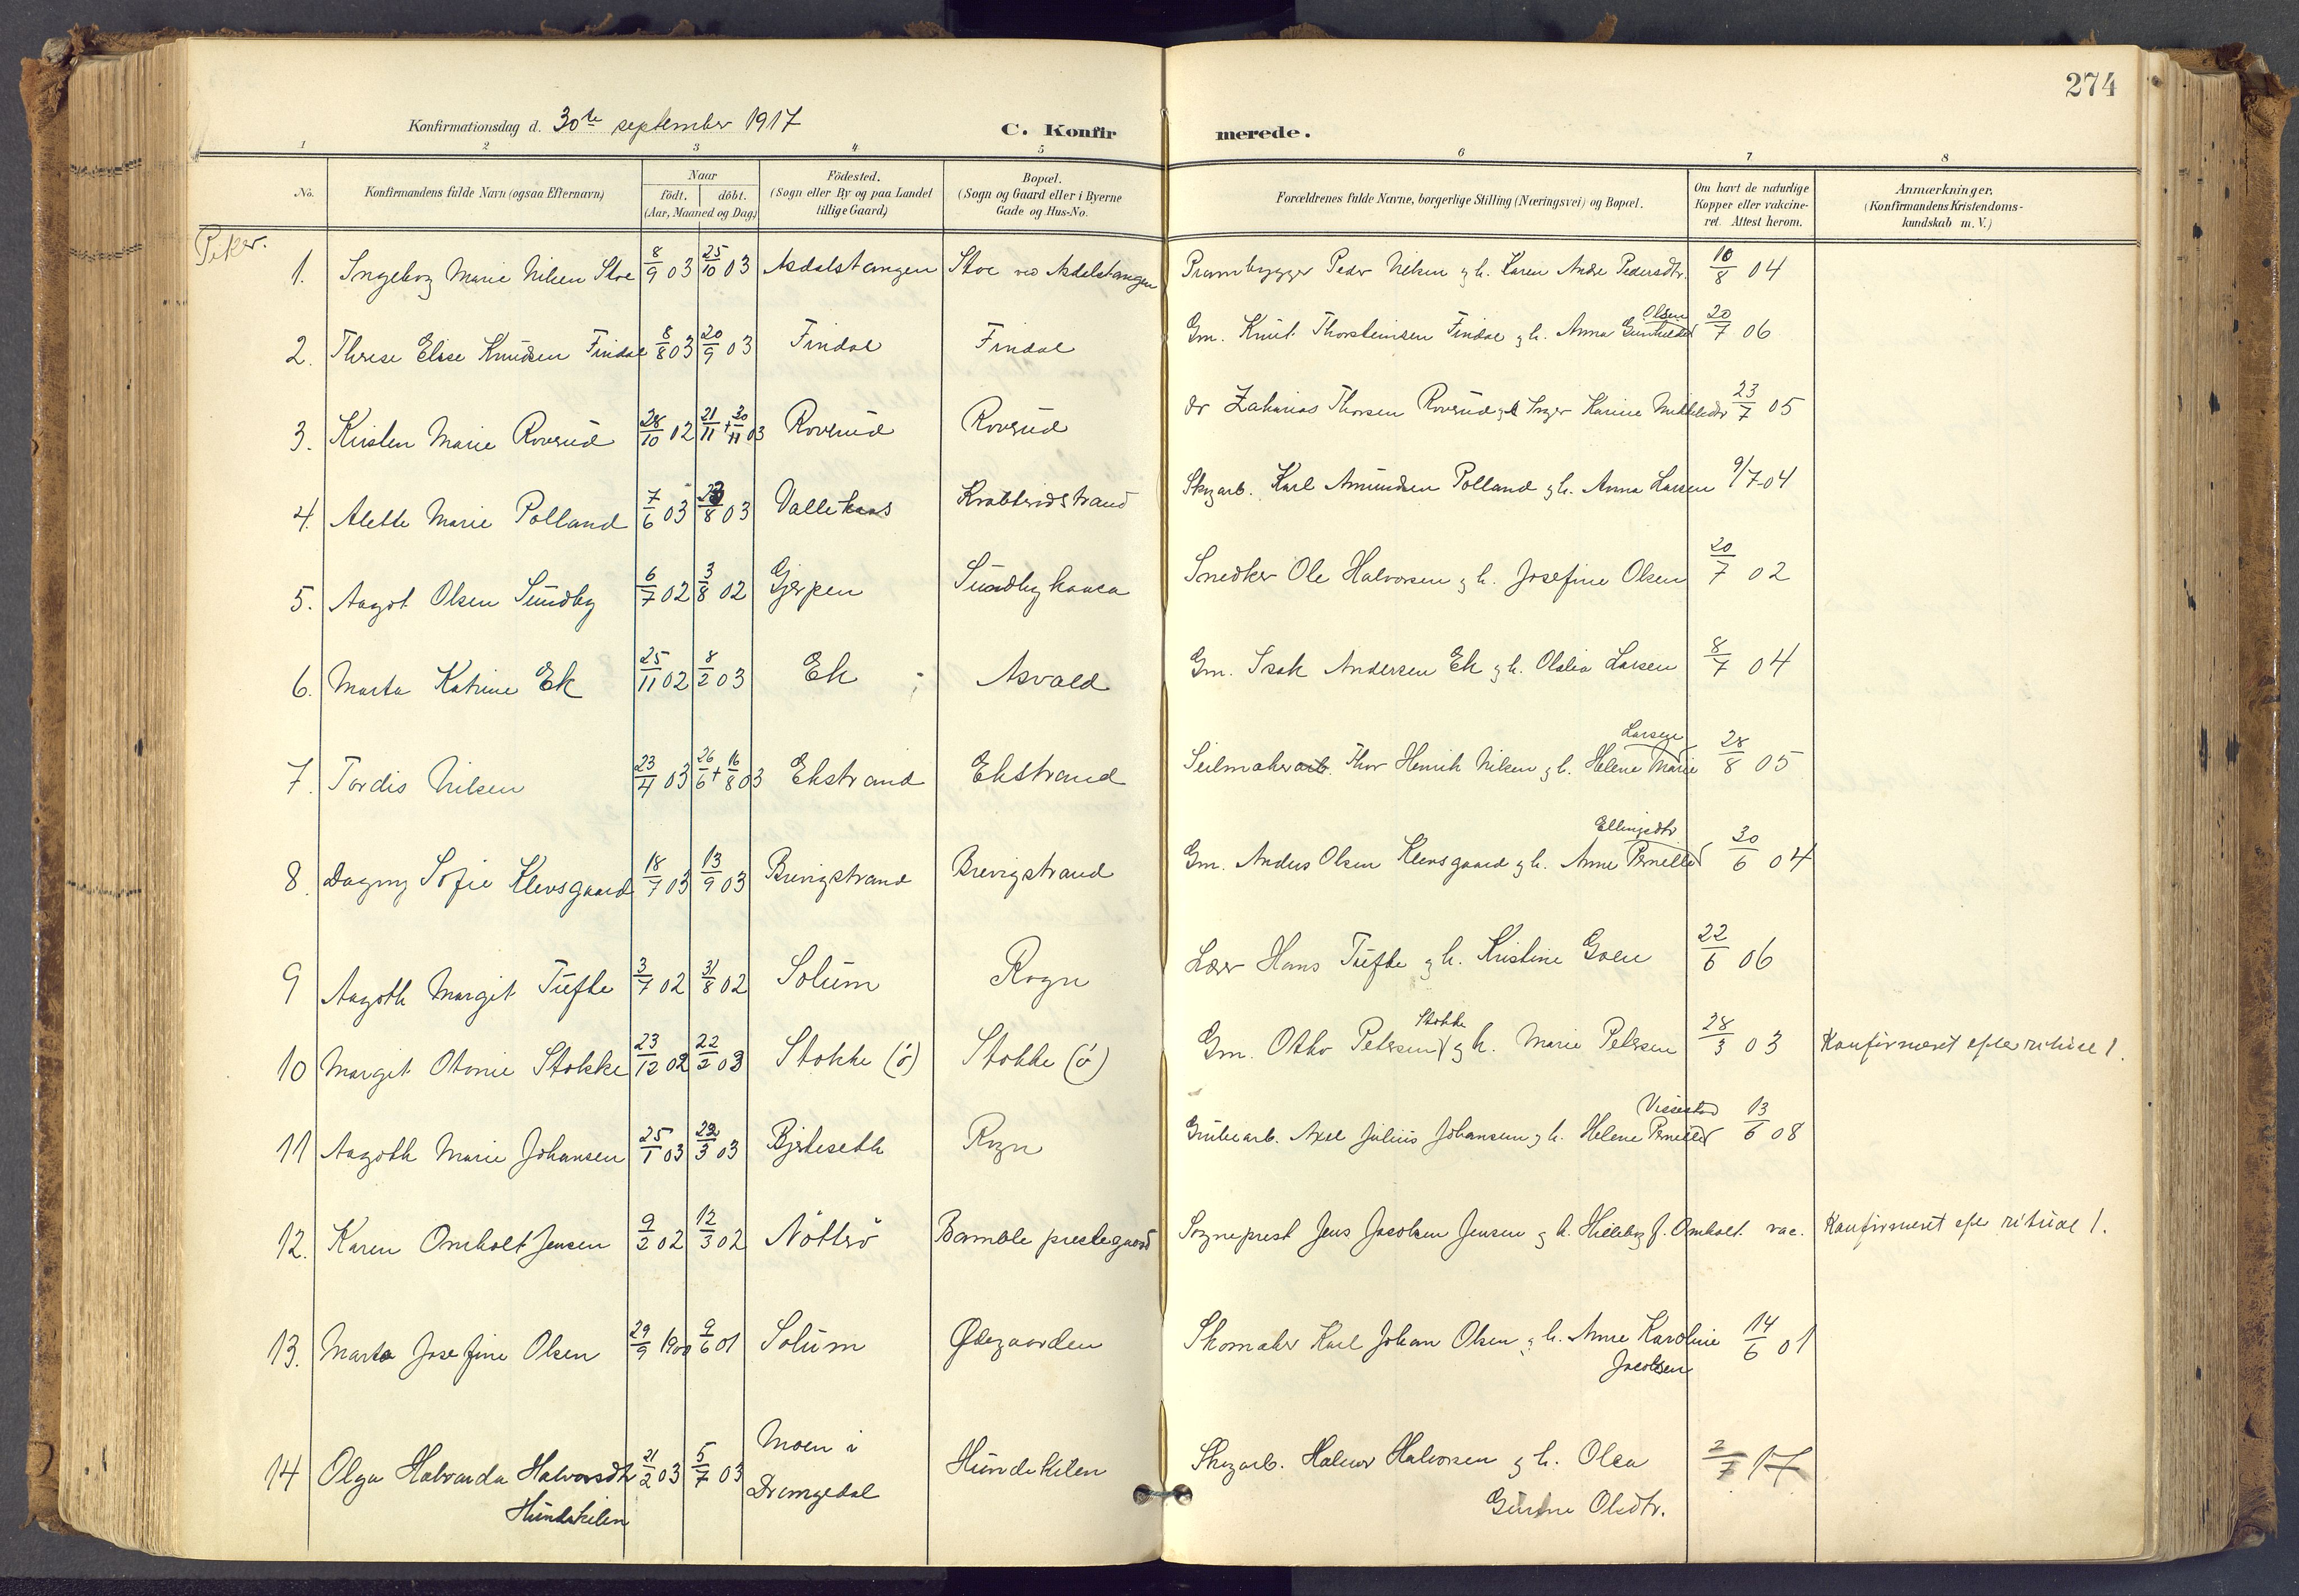 274
Konfirmationsdag d. 30te september 1917
C. Konfirmerede.
1 2 3 4 5 6 7 8
No. Konfirmandens fulde Navn (ogsaa Efternavn) Naar födt. döbt. (Aar, Maaned og Dag) Födested. (Sogn eller By og paa Landet tillige Gaard) Bopæl. (Sogn og Gaard eller i Byerne Gade og Hus-No. Forældrenes fulde Navne, borgerlige Stilling (Næringsvei) og Bopæl. Om havt de naturlige Kopper eller vakcineret. Attest herom. Anmærkninger. (Konfirmandens Kristendomskundskab m. V.)
Piker.
1. Ingeborg Marie Nilsen Stoe 8/9 03 25/10 03 Asdalstangen Stoe ved Asdalstangen Prambygger Peder Nilsen og h. Karen Andrea Pedersdtr. 10/8 04
2. Threse Elise Knudsen Findal 8/8 03 20/9 03 Findal Findal Gm. Knut Thorsteinsen Findal og h. Anna Gunhilda Olsen 20/7 06
3. Kristen Marie Roverud 28/10 02 21/11 + 30/11 03 Roverud Roverud do Zakarias Thorsen Roverud og h. Inger Karine 23/7 05
4. Alette Marie Polland 7/6 03 23/8 03 Valle Krabberødstrand Skogarb. Karl Amundsen Polland og h. Anna Larsen 9/7 04
5. Aagot Olsen Sundby 6/7 02 3/8 02 Gjerpen Sundbykaasa Snedker Ole Halvorsen og h. Josefine Olsen 20/7 02
6. Marta Katrine Ek 25/11 02 8/2 03 Ek Asvald Gm. Isak Andersen Ek og h. Olalia Larsen 8/7 04
7. Tordis Nilsen 23/4 03 26/6 + 16/8 03 Ekstrand Ekstrand Seilmakerarb. Thor Henrik Nilsen og h. Helene Marie Larsen 28/8 05
8. Dagny Sofie Klevsgaard 18/7 03 13/9 03 Brevigstrand Brevigstrand Gm. Anders Olsen Klevsgaard og h. Anne Pernille Ellingsdtr 30/6 04
9 Aagoth Margit Tufte 3/7 02 31/8 02 Solum Rogn Lærer Hans Tufte og h. Kristine Goen 22/6 06
10 Margit Otonie Stokke 23/12 02 22/2 03 Stokke (ö) Stokke (ö) Gm. Otho Petersen Stokke og h. Marie Petersen 28/3 03 Konfirmeret efter rituae 1.
11 Aagoth Marie Johansen 25/1 03 22/3 03 Bjerkeseth Rogn Grubearb. Axel Julius Johansen og h. Helene Pernille Vissestad 13/6 08
12. Karen Omholt Jensen 9/2 02 12/3 02 Nötterö Bamble prestegaard Sogneprest Jens Jacobsen Jensen og h. Hilleborg f. Omholt. vac. Konfirmeret efter rituae 1.
13. Marta Josefine Olsen 29/9 1900 9/6 01 Solum Ødegaarden Skomaker Karl Johan Olsen og h. Anne Karoline Jacobsen 14/6 01
14 Olga Halvarda Halvorsdtr Hundkilen 21/2 03 5/7 03 Moen i Drangedal Hundekilen Skogarb. Halvor Halvorsen og h. Olea Gurine Olsdtr. 2/7 17